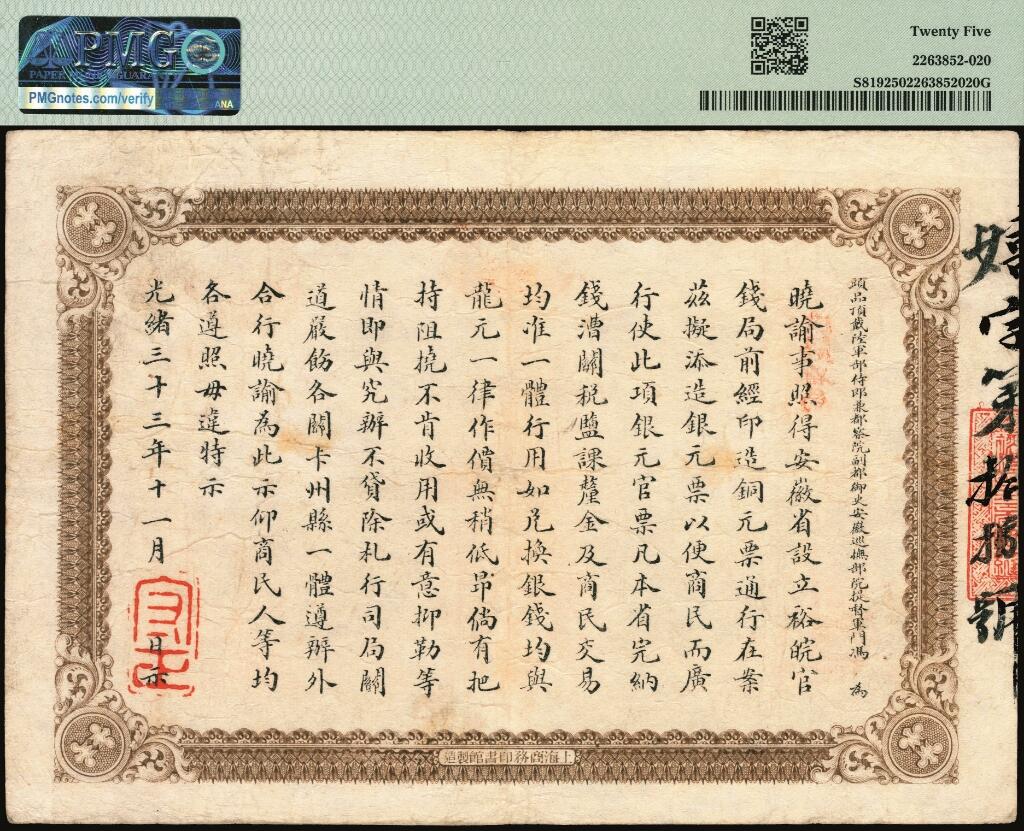 PMG
PAPER MONEY GUARANTY
PMGnotes.com/verify
ANA
Twenty Five
2263852-020
S8192502263852020G
頭品頂戴陸軍部侍郎兼都察院副都御史安徽巡撫部院提督軍門馮 為
曉諭事照得安徽省設立裕皖官
錢局前經印造銅元票通行在案
茲擬添造銀元票以便商民而廣
行使此項銀元官票凡本省完納
錢漕關稅鹽課釐金及商民交易
均准一體行用如兌換銀錢均與
龍元一律作價無稍低昂倘有把
持阻撓不肯收用或有意抑勒等
情即與究辦不貸除札行司局關
道嚴飭各關卡州縣一體遵辦外
合行曉諭為此示仰商民人等均
各遵照毋違特示
光緒三十三年十一月 日示
上海商務印書館製造